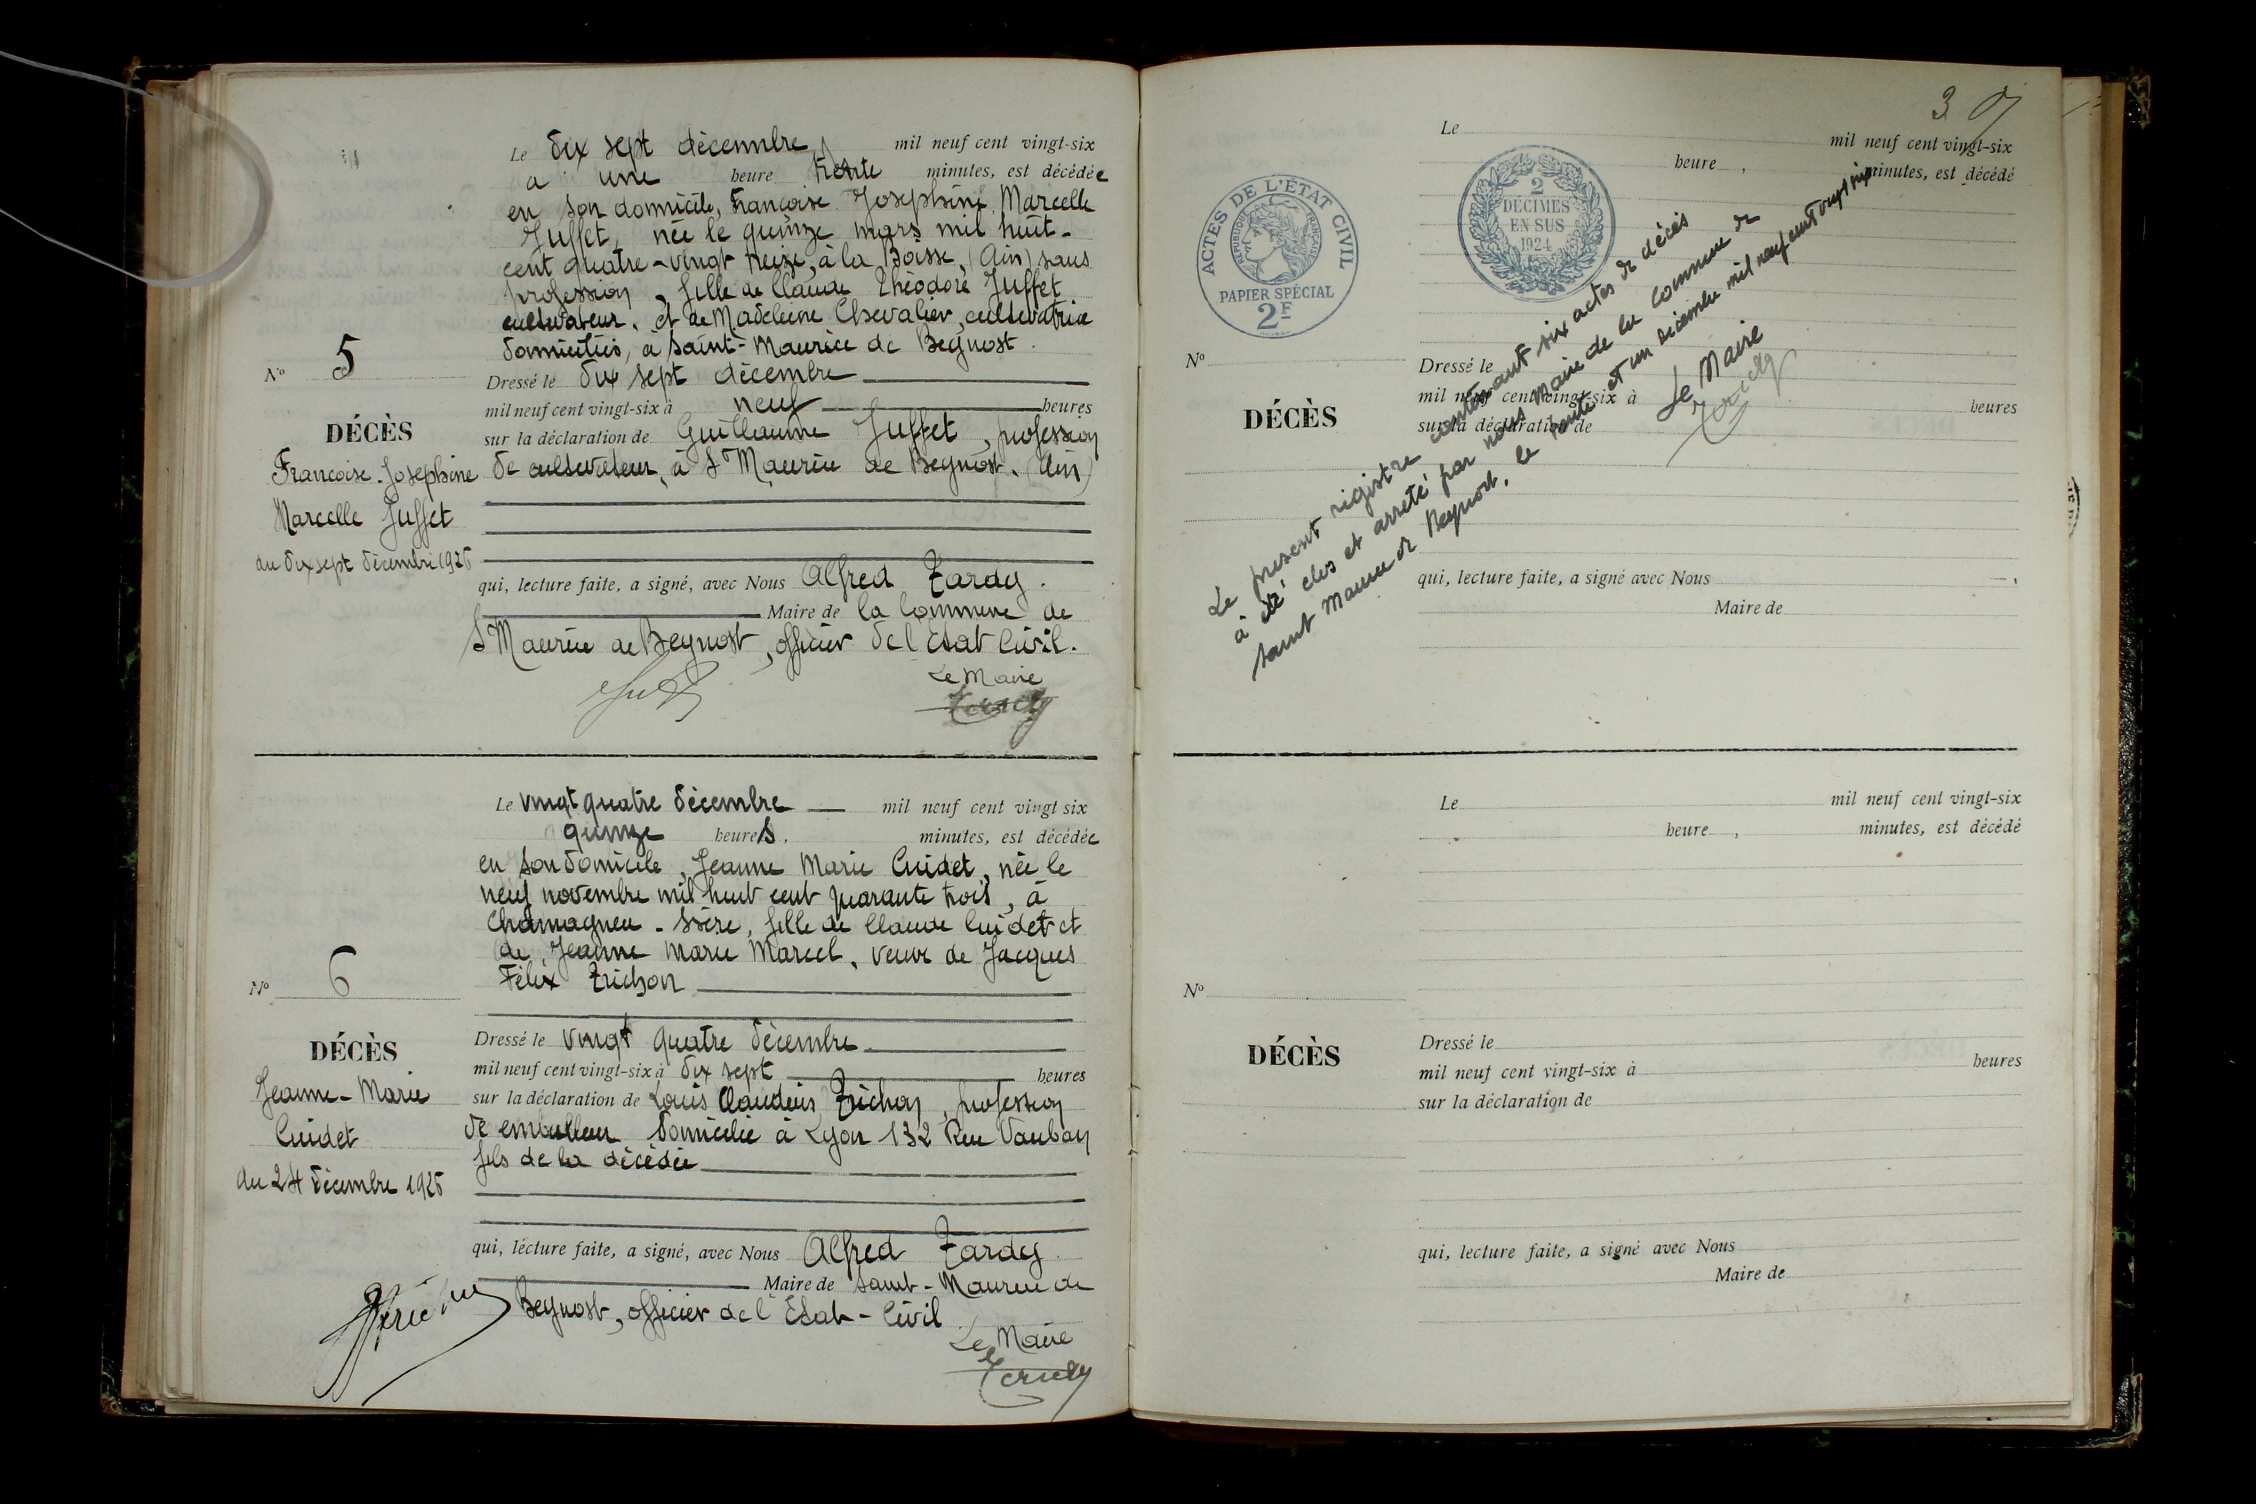 Le dix sept décembre mil neuf cent vingt-six
à une heure trente minutes, est décédée
en son domicile, Francoise Josephine Marcelle
Juffet, née le quinze mars mil huit-
cent quatre-vingt treize, à la Boisse, (Ain) sans
profession, fille de Claude Théodore Juffet
cultivateur, et de Madeleine Chevalier, cultivatrice
domiciliés, à Saint-Maurice de Beynost.
Nº 5
Dressé le dix sept décembre
mil neuf cent vingt-six à neuf heures
DÉCÈS
sur la déclaration de Guillaume Juffet, profession
Francoise-Josephine
de cultivateur, à St Maurice de Beynost. (Ain)
Marcelle Juffet
du dix sept décembre 1926
qui, lecture faite, a signé, avec Nous Alfred Tardy.
Maire de la Commune de
St Maurice de Beynost, officier de l'Etat Civil.
Le Maire
Tardy
Le vingt quatre décembre mil neuf cent vingt six
quinze heures, minutes, est décédée
en son domicile, Jeanne Marie Cuidet, née le
neuf novembre mil huit cent quarante trois, à
Chamagneu-Isère, fille de Claude Cuidet et
de Jeanne Marie Marcel, veuve de Jacques
Félix Trichon
Nº 6
Dressé le vingt quatre décembre
DÉCÈS
mil neuf cent vingt-six à dix sept heures
Jeanne-Marie
sur la déclaration de Louis Claudius Trichon, profession
Cuidet
de domicilié à Lyon 132 Rue Vauban
fils de la décédée
du 24 décembre 1926
qui, lecture faite, a signé, avec Nous Alfred Tardy
Maire de Saint-Maurice de
Beynost, officier de l'Etat-Civil
Le Maire
Tardy
3
Le mil neuf cent vingt-six
heure, minutes, est décédé
ACTES DE L'ÉTAT CIVIL
RÉPUBLIQUE FRANÇAISE
PAPIER SPÉCIAL
2F
2
DÉCIMES
EN SUS
1924
Le présent registre contenant six actes de décès
à été clos et arrêté par nous Maire de la Commune de
Saint Maurice de Beynost, le trente et un décembre mil neuf cent vingt six
Le Maire
Tardy
Nº
Dressé le
mil neuf cent vingt-six à heures
DÉCÈS
sur la déclaration de
qui, lecture faite, a signé avec Nous
Maire de
Le mil neuf cent vingt-six
heure, minutes, est décédé
Nº
Dressé le
DÉCÈS
mil neuf cent vingt-six à heures
sur la déclaration de
qui, lecture faite, a signé avec Nous
Maire de